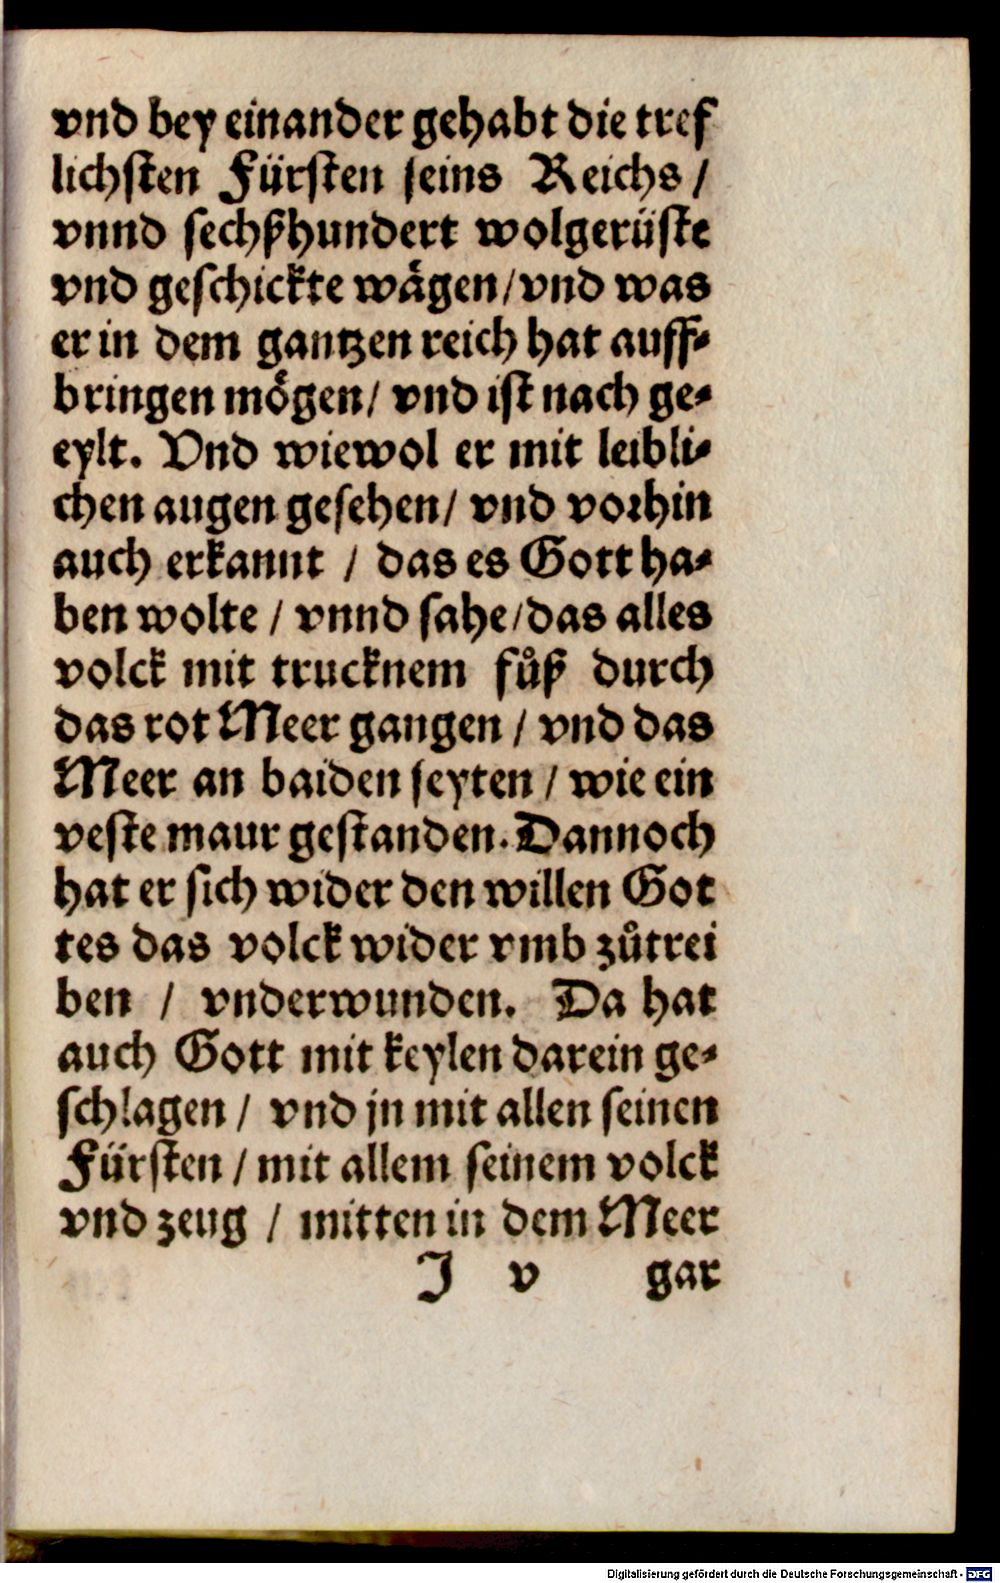 vnd bey einander gehabt die tref
lichsten Fürsten seins Reichs /
vnnd sechßhundert wolgerüste
vnd geschickte wägen / vnd was
er in dem gantzen reich hat auff⸗
bringen mögen / vnd ist nach ge⸗
eylt. Vnd wiewol er mit leibli⸗
chen augen gesehen / vnd vorhin
auch erkannt / das es Gott ha⸗
ben wolte / vnnd sahe / das alles
volck mit trucknem fůß durch
das rot Meer gangen / vnd das
Meer an baiden seyten / wie ein
veste maur gestanden. Dannoch
hat er sich wider den willen Got
tes das volck wider vmb zůtrei
ben / vnderwunden. Da hat
auch Gott mit keylen darein ge⸗
schlagen / vnd jn mit allen seinen
Fürsten / mit allem seinem volck
vnd zeug / mitten in dem Meer
J v gar
Digitalisierung gefördert durch die Deutsche Forschungsgemeinschaft - DFG